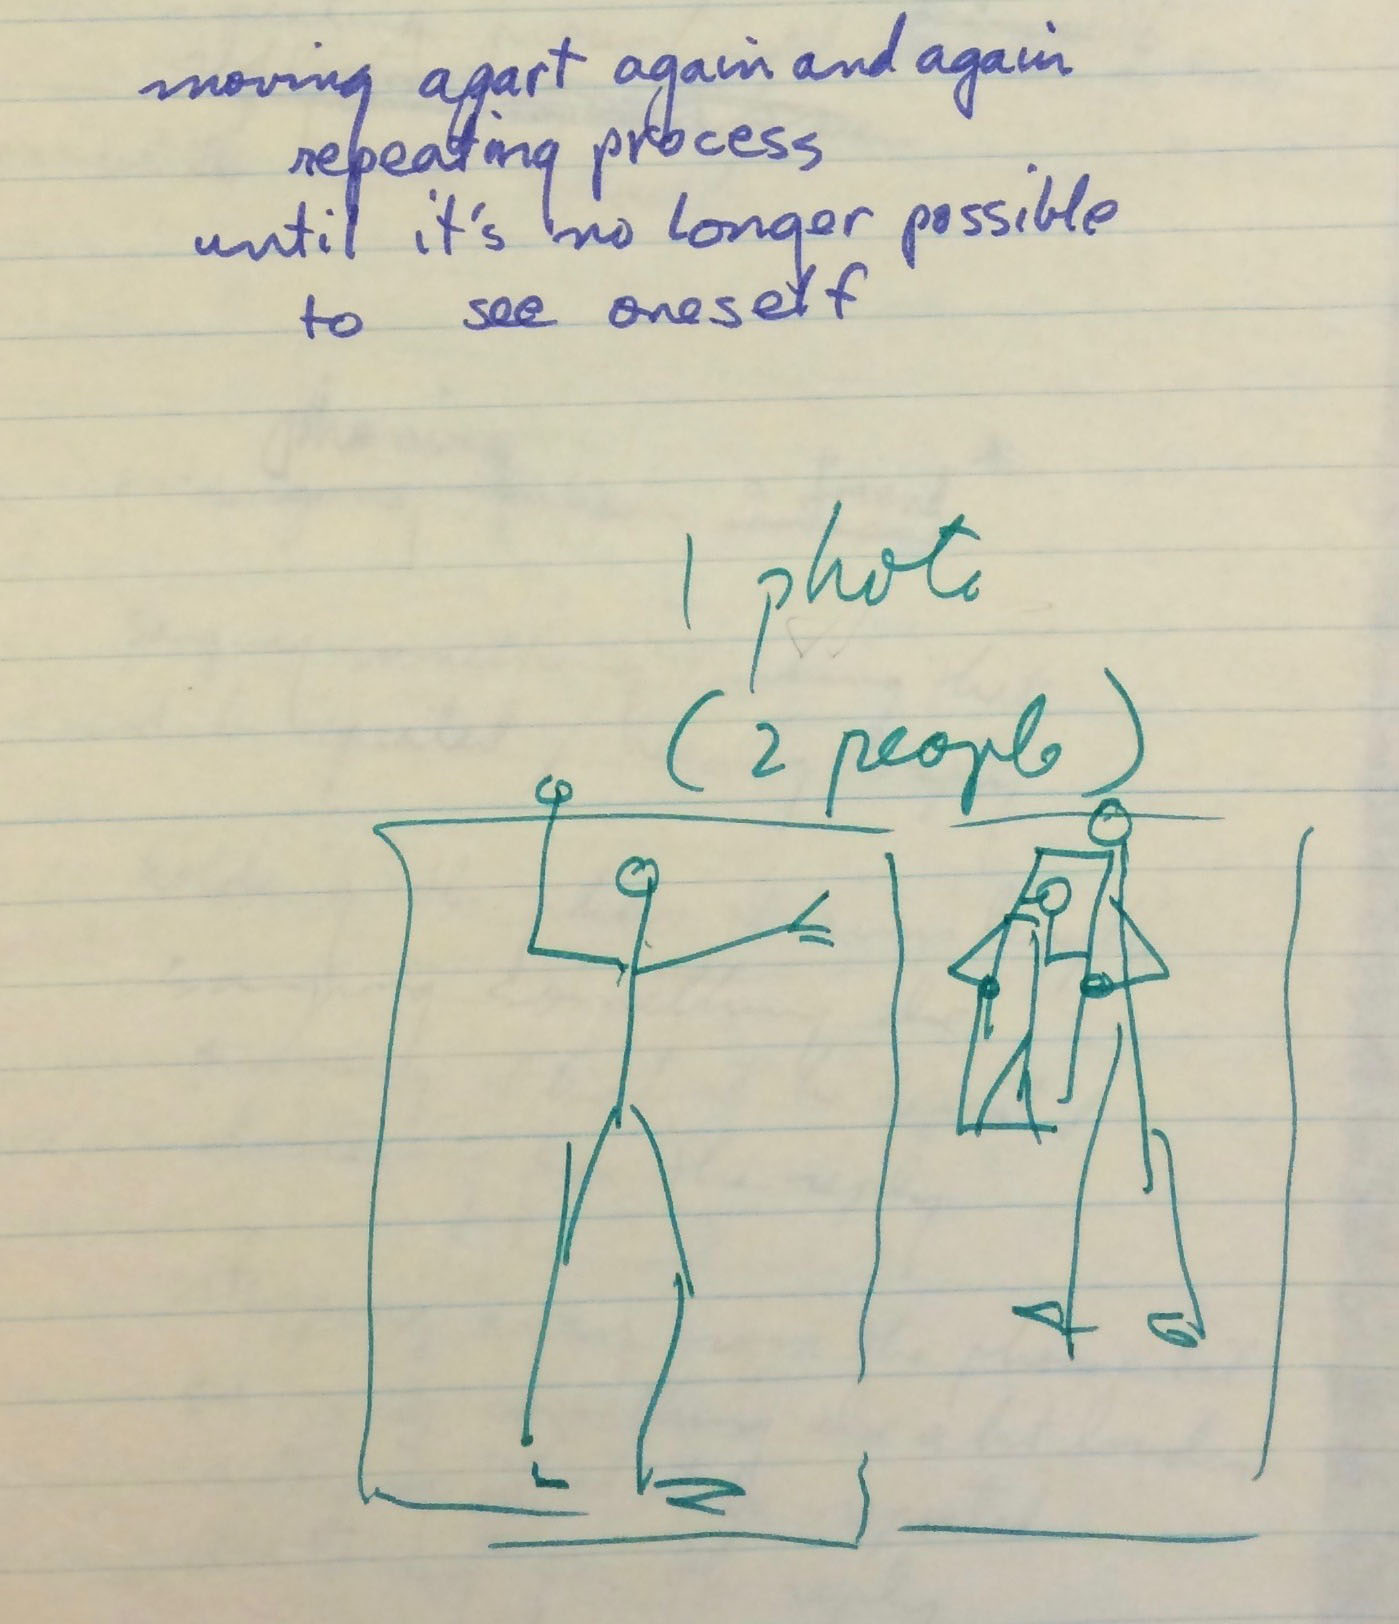 moving apart again and again
repeating process
until it's no longer possible
to see oneself
1 photo
(2 people)